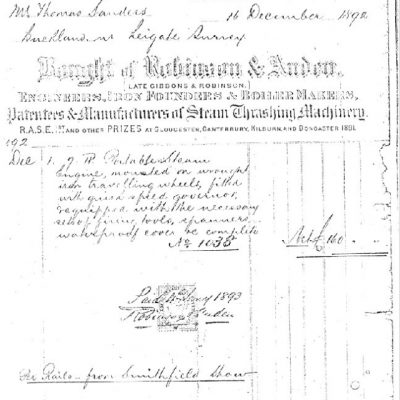 Mr Thomas Sanders 16 December 1892
Buckland nr Reigate Surrey
Bought of Robinson & Auden,
(LATE GIBBONS & ROBINSON,)
ENGINEERS, IRON FOUNDERS & BOILER MAKERS,
Patentees & Manufacturers of Steam Thrashing Machinery.
R.A.S.E. 1st AND OTHER PRIZES AT GLOUCESTER, CANTERBURY, KILBURN, AND DONCASTER 1891.
1892
Dec 1. 7 HP Portable Steam
Engine, mounted on wrought
iron travelling wheels, fitted
with quick speed governor,
& equipped with the necessary
set of firing tools, spanners
waterproof cover &c complete
No 1035 Nett £ 160
Paid 1893
Robinson & Auden
Per Rails - from Smithfield Show